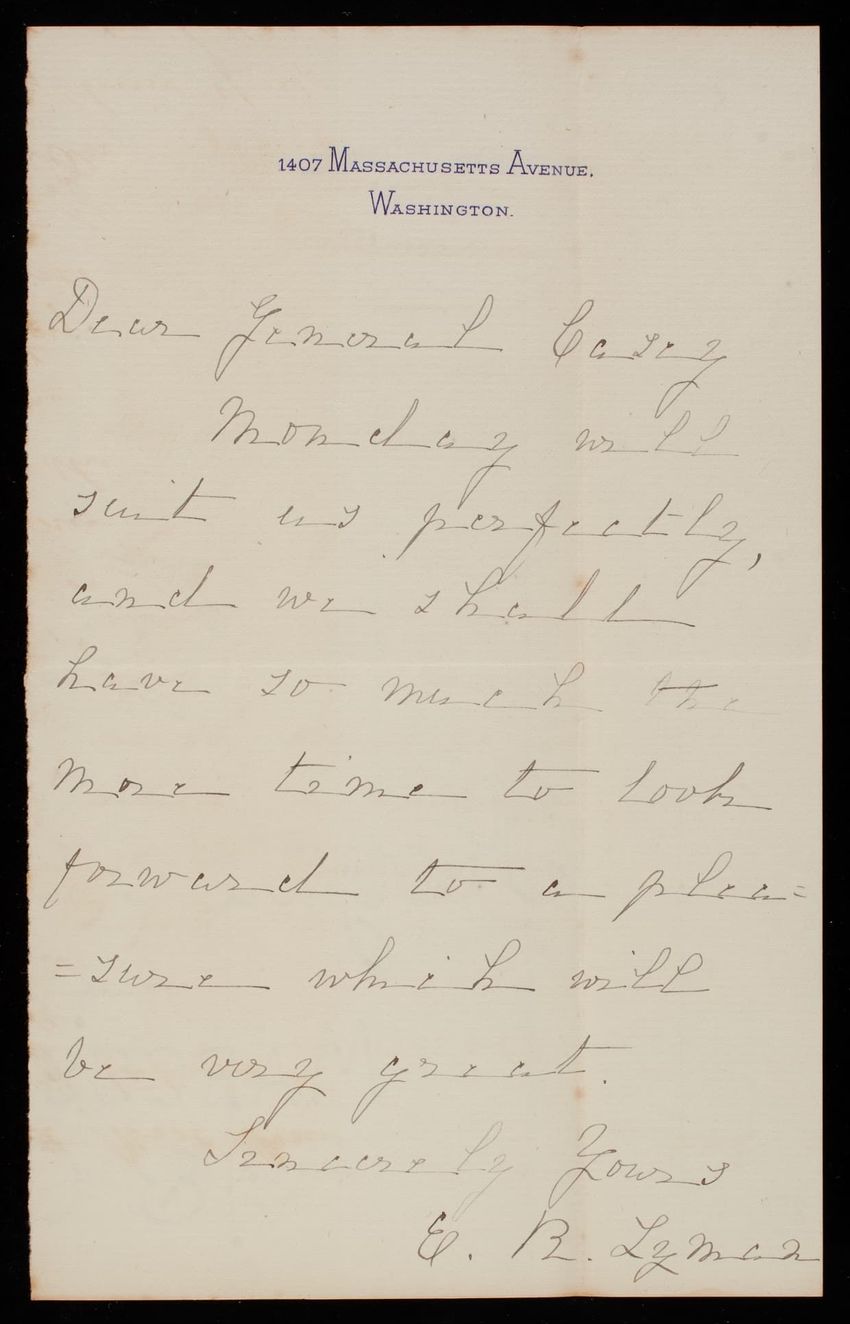 1407 Massachusetts Avenue.
Washington.
Dear General Casey
Monday will
suit us perfectly,
and we shall
have so much the
more time to look
forward to a plea=
=sure which will
be very great.
Sincerely Yours
E. R. Lyman